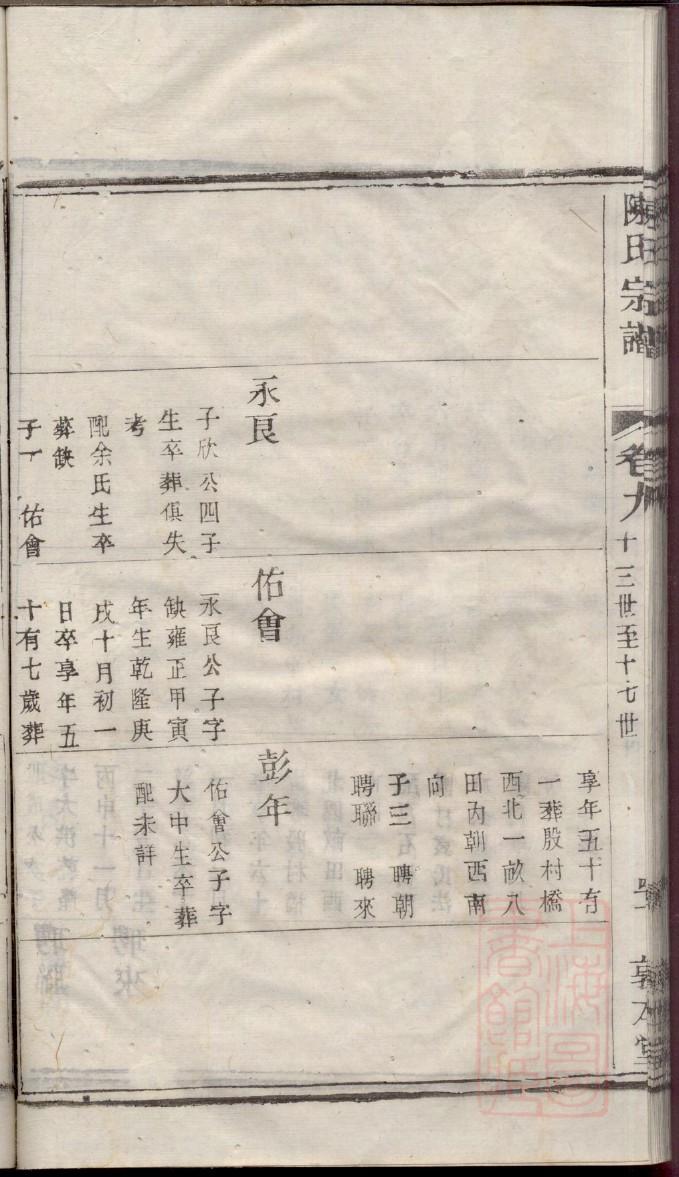 陳氏宗譜
卷九
十三世至十七世
永良
子欣公四子
生卒葬俱失
考
配余氏生卒
葬缺
子一　佑會
佑會
永良公子字
缺雍正甲寅
年生乾隆庚
戌十月初一
日卒享年五
十有七歲葬
享年五十有
一葬殷村橋
西北一畝八
田內朝西南
向
子三　聘朝
聘聯　聘來
彭年
佑會公子字
大中生卒葬
配未詳
上海圖書館藏